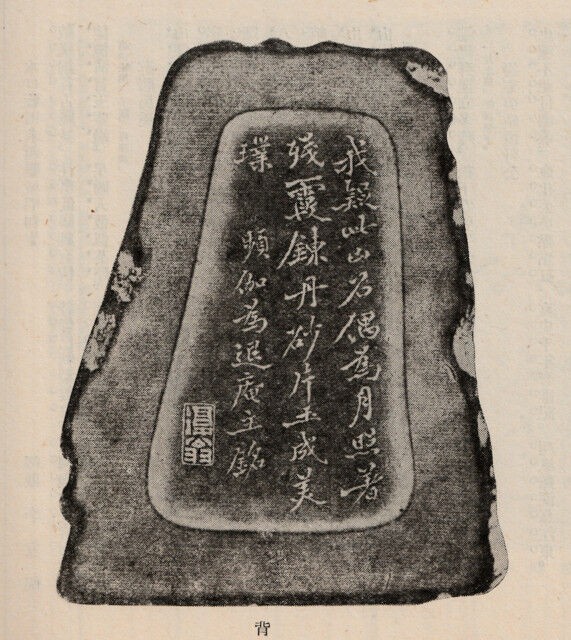 我疑此山石偶為月照著
殘霞鍊丹砂片土成美
璞
頻伽為退庵主銘
背